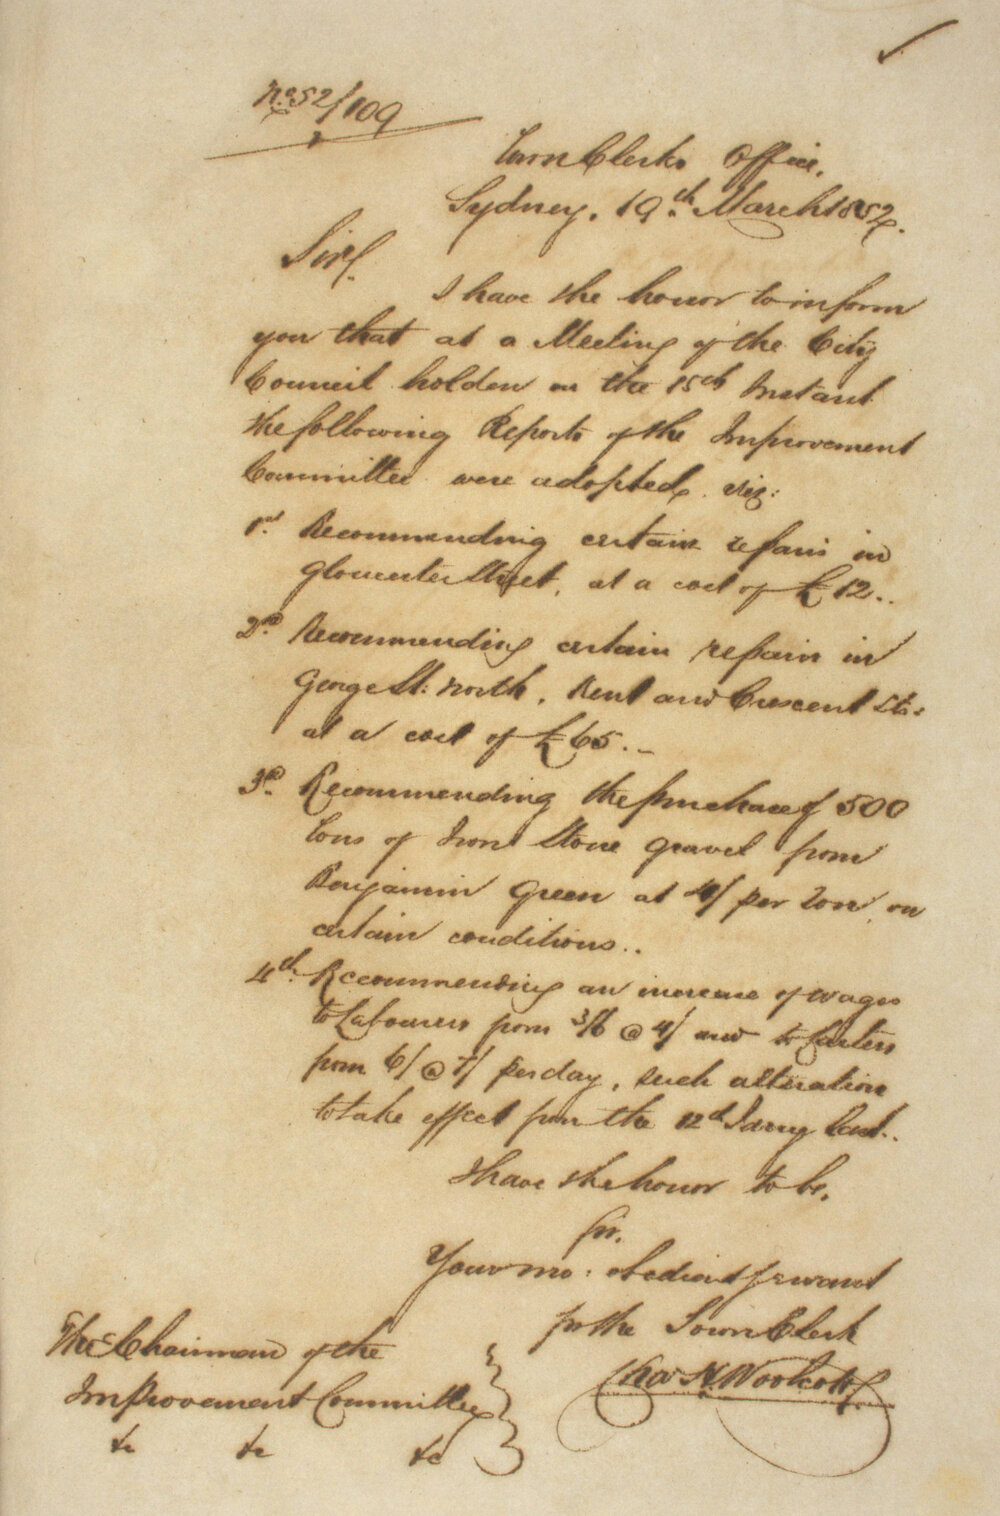 No. 52/109
Town Clerks Office,
Sydney, 19th March 1852.
Sir,
I have the honor to inform
you that at a Meeting of the City
Council holden on the 15th Instant
the following Reports of the Improvement
Committee were adopted, viz:
1st Recommending certain repairs in
Gloucester Street, at a cost of £12..
2nd Recommending certain repairs in
George St: North, Kent and Crescent Sts:
at a cost of £65.-
3rd Recommending the purchase of 500
tons of Iron Stone gravel from
Benjamin Green at 4/ per ton on
certain conditions..
4th Recommending an increase of wages
to Labourers from 3/6 @ 4/ and to Carters
from 6/ @ 7/ per day, such alteration
to take effect from the 12th Jany last..
I have the honor to be,
Sir,
Your mo: obedient Servant
for the Town Clerk
Chas H. Woolcott
The Chairman of the
Improvement Committee
&c &c &c